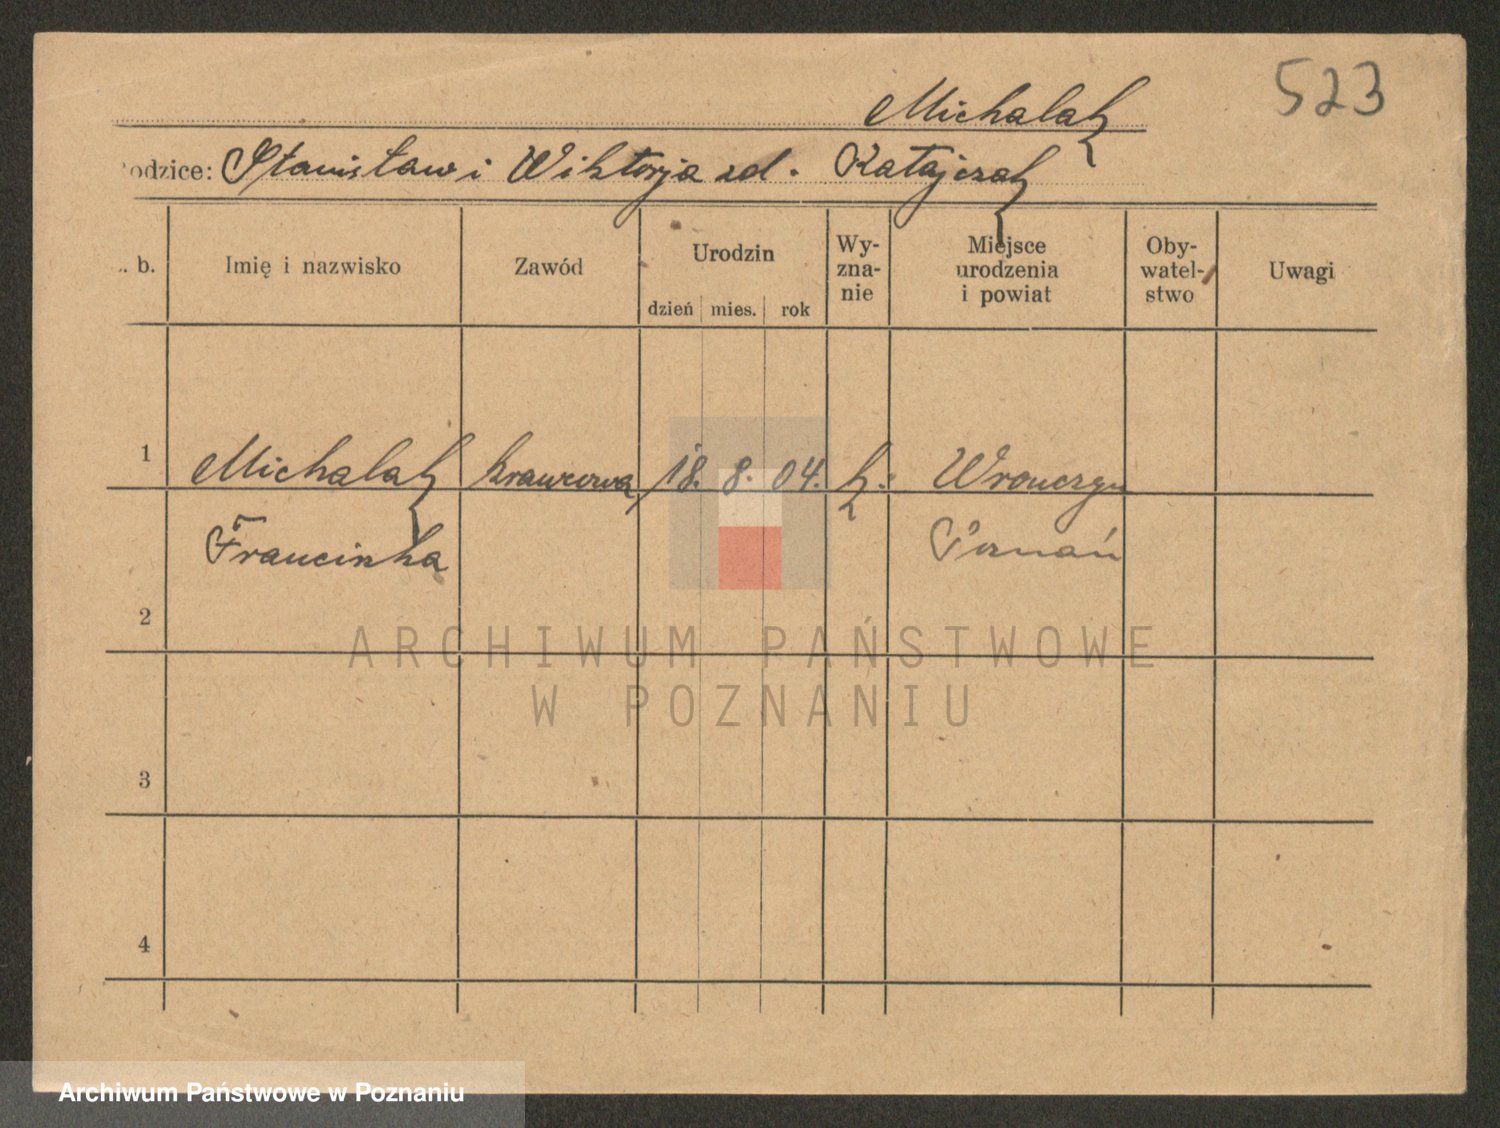 523
Michalak
Rodzice: Stanisław i Wiktorja zd. Katajczak
. b.
Imię i nazwisko
Zawód
Urodzin
dzień mies. rok
Wy-
zna-
nie
Miejsce
urodzenia
i powiat
Oby-
watel-
stwo
Uwagi
1 Michalak krawcowa 18. 8. 04. k: Wronczyn
Franciszka Poznań
2
3
4
ARCHIWUM PAŃSTWOWE
W POZNANIU
Archiwum Państwowe w Poznaniu